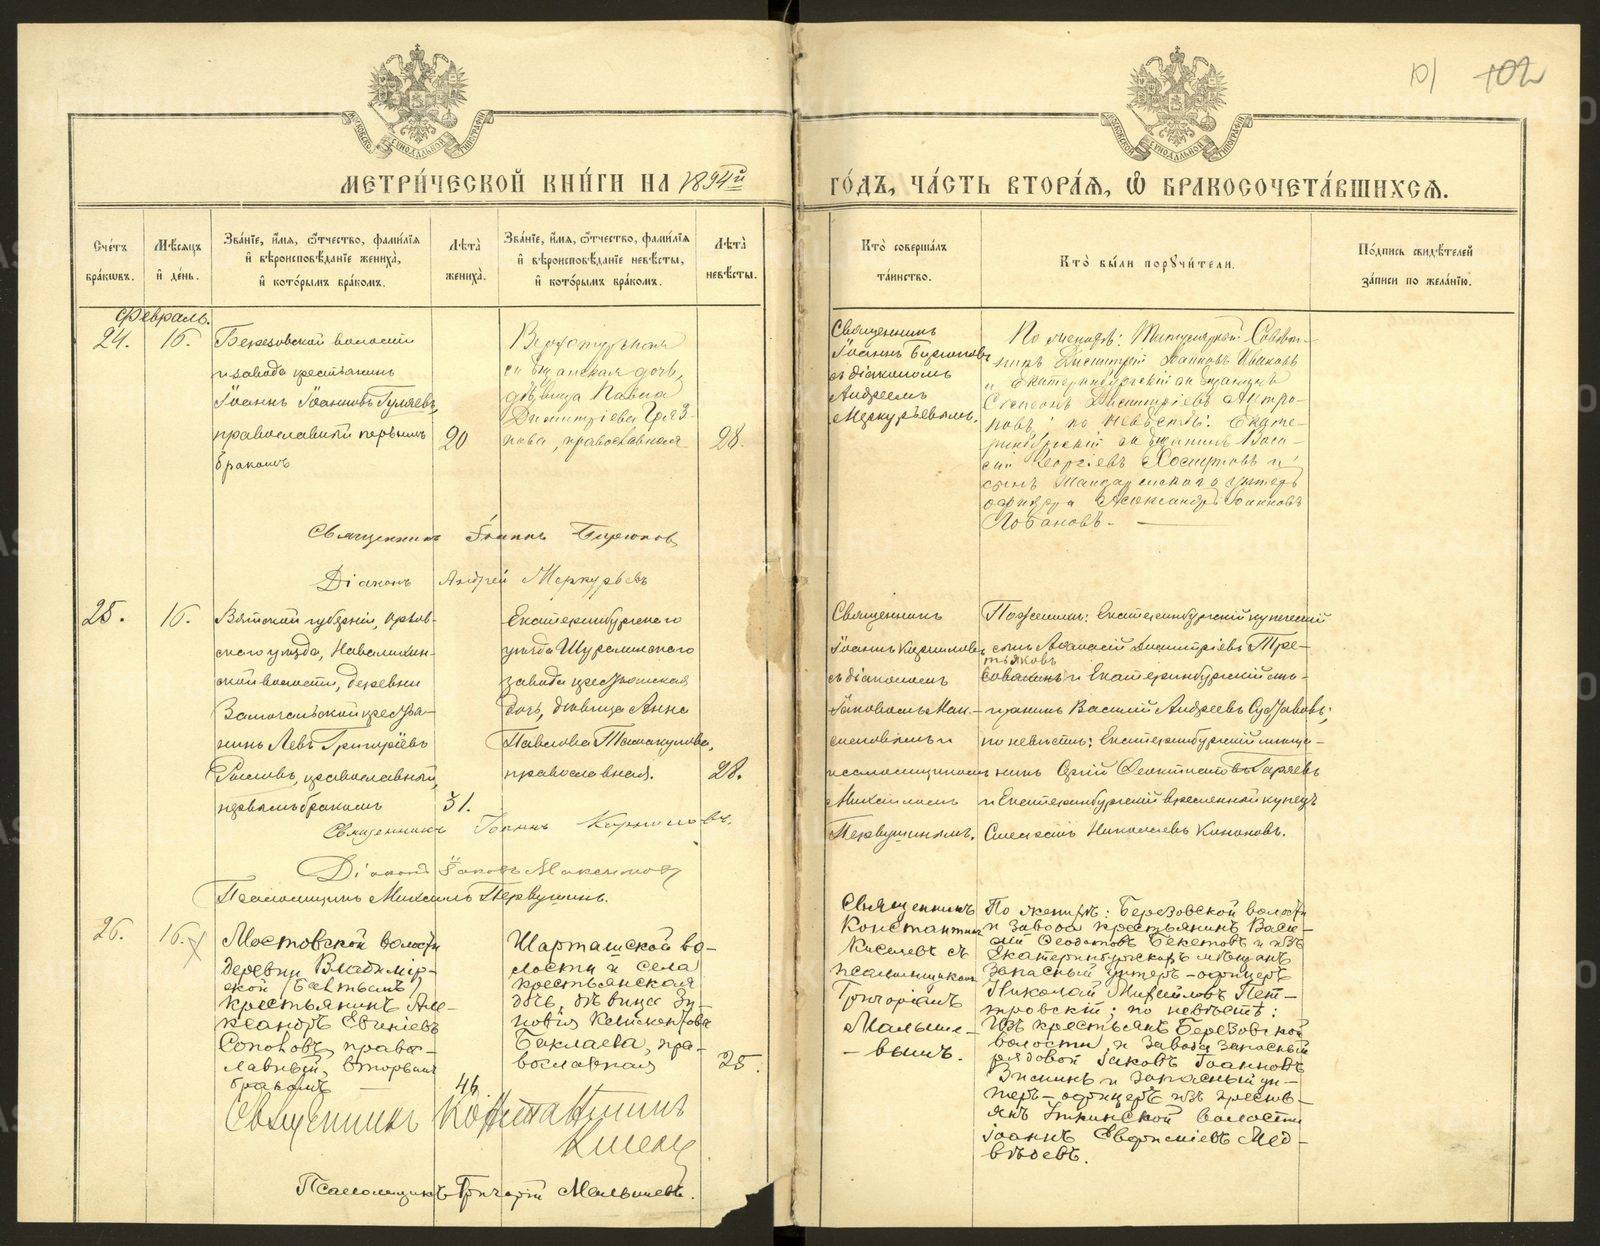 101 102
МЕТРИ́ЧЕСКОЙ КНИ́ГИ НА 1894й ГО́ДЪ, ЧА́СТЬ ВТОРА́Я, Ѽ БРАКОСОЧЕТА́ВШИХСЯ.
Сче́тъ бра́ковъ.
Мѣ́сяцъ и҆ де́нь.
Зва́нїе, и҆́мя, ѻ҆́тчество, фами́лїя
и҆ вѣроисповѣ́данїе жениха̀,
и҆ кото́рымъ бра́комъ.
Лѣта̀ жениха̀.
Зва́нїе, и҆́мя, ѻ҆́тчество, фами́лїя
и҆ вѣроисповѣ́данїе невѣ́сты,
и҆ кото́рымъ бра́комъ.
Лѣта̀ невѣ́сты.
Кто̀ соверша́лъ
та́инство.
Кто̀ бы́ли поручи́тели.
По́дпись свидѣ́телей
за́писи по жела́нїю.
Февраль.
24.
16.
Березовской волости
и завода крестьянинъ
Іоаннъ Іоанновъ Гуляевъ,
православный первымъ
бракомъ
20
Верхотурская
мѣщанская дочь,
дѣвица Павла
Димитріева Гряз-
нова, православная
28.
Священникъ
Іоаннъ Бирюковъ
съ діакономъ
Андреемъ
Меркурьевымъ.
По женихѣ: Титулярный Совѣт-
никъ Димитрій Іоанновъ Ивановъ
и Екатеринбургскій мѣщанинъ
Степанъ Димитріевъ Антро-
повъ; по невѣстѣ: Екате-
ринбургскій мѣщанинъ Васи-
лій Георгіевъ
сынъ унтеръ
офицера Александръ Іоанновъ
Лобановъ.
Священникъ Іоаннъ Бирюков
Діаконъ Андрей Меркурьевъ
25.
16.
Вятской губерніи, Орлов-
скаго уѣзда,
ской волости, деревни
крестья-
нинъ Левъ Григоріевъ
православный,
первымъ бракомъ
31.
Екатеринбургскаго
уѣзда Шуралинскаго
завода крестьянская
дочь, дѣвица Анна
Павлова Тамакулова,
православная.
28.
Священникъ
Іоаннъ Корниловъ
съ діакономъ
Іаковомъ Мак-
симовымъ и
псаломщикомъ
Михаиломъ
Первушинымъ.
По женихѣ: Екатеринбургскій купеческій
сынъ Аѳанасій Димитріевъ Тре-
тьяковъ
и Екатеринбургскій мѣ-
щанинъ Василій Андреевъ Суставовъ;
по невѣстѣ: Екатеринбургскій мѣща-
нинъ Сергій Ѳеоктистовъ Гаряевъ
и Екатеринбургскій временной купецъ
Николаевъ Кононовъ.
Священникъ Іоаннъ Корниловъ.
Діаконъ Іаковъ Максимовъ
Псаломщикъ Михаилъ Первушинъ.
26.
16.
Мостовской волости
деревни Владимір-
ской
крестьянинъ Але-
ксандръ
Сопоковъ, право-
лавный, вторымъ
бракомъ
46.
Шарташской во-
лости и села
крестьянская
дочь, дѣвица Зи-
новія Климентова
Баклаева, пра-
вославная
25.
Священникъ
Константинъ
Киселевъ съ
псаломщикомъ
Григоріемъ
Малыше-
-вымъ.
По женихѣ: Березовской волости
и завода крестьянинъ Васи-
лій Ѳеодотовъ Бекетовъ и изъ
Екатеринбургскихъ мѣщанъ
запасный унтеръ-офицеръ
Николай Михайловъ Пет-
ровскій; по невѣстѣ:
Изъ крестьянъ Березовской
волости и завода запасный
рядовой Іаковъ Іоанновъ
и запасный ун-
теръ-офицеръ изъ кресть-
янъ волости
Іоаннъ Евфиміевъ Мед-
вѣдевъ.
Священникъ Константинъ
Киселевъ
Псаломщикъ Григорій Малышевъ.